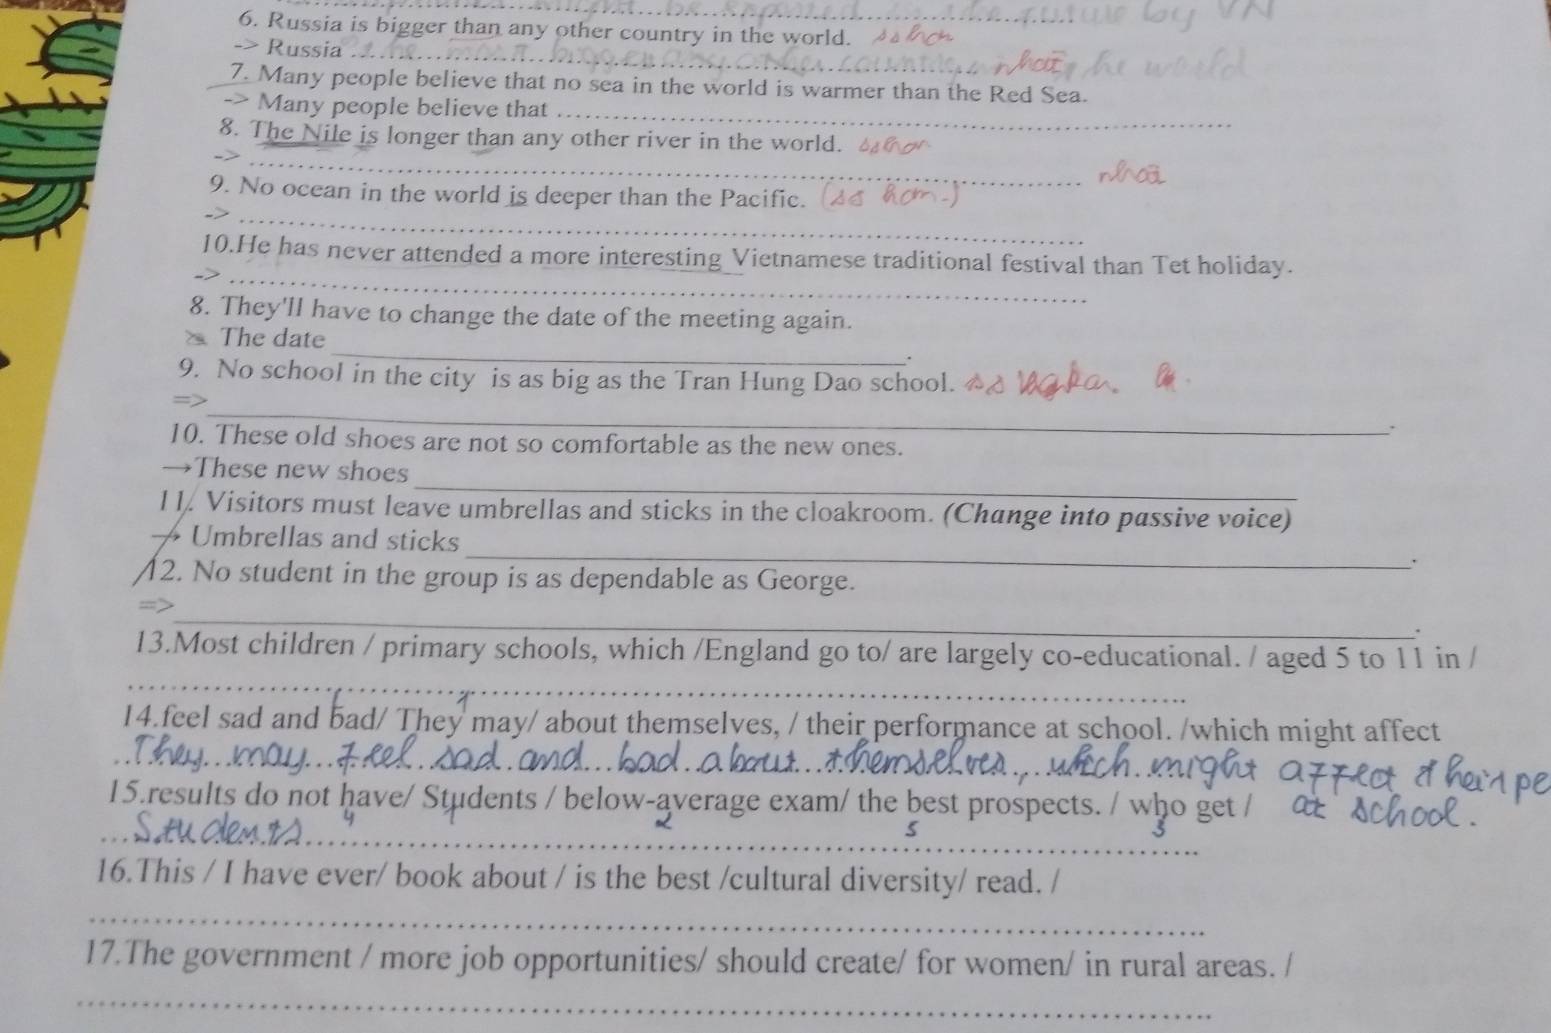 6. Russia is bigger than any other country in the world.
-> Russia
7. Many people believe that no sea in the world is warmer than the Red Sea.
-> Many people believe that
8. The Nile is longer than any other river in the world.
->
nhất
9. No ocean in the world is deeper than the Pacific. (ss hơn.)
->
10.He has never attended a more interesting Vietnamese traditional festival than Tet holiday.
->
8. They'll have to change the date of the meeting again.
The date
9. No school in the city is as big as the Tran Hung Dao school.
=>
10. These old shoes are not so comfortable as the new ones.
→These new shoes
11. Visitors must leave umbrellas and sticks in the cloakroom. (Change into passive voice)
→ Umbrellas and sticks
12. No student in the group is as dependable as George.
=>
13.Most children / primary schools, which /England go to/ are largely co-educational. / aged 5 to 11 in /
14.feel sad and bad/ They may/ about themselves, / their performance at school. /which might affect
They may feel sad and bad about themselves, which might affect their pe
15.results do not have/ Students / below-average exam/ the best prospects. / who get / at school.
Students 4 2 5 3
16.This / I have ever/ book about / is the best /cultural diversity/ read. /
17.The government / more job opportunities/ should create/ for women/ in rural areas. /